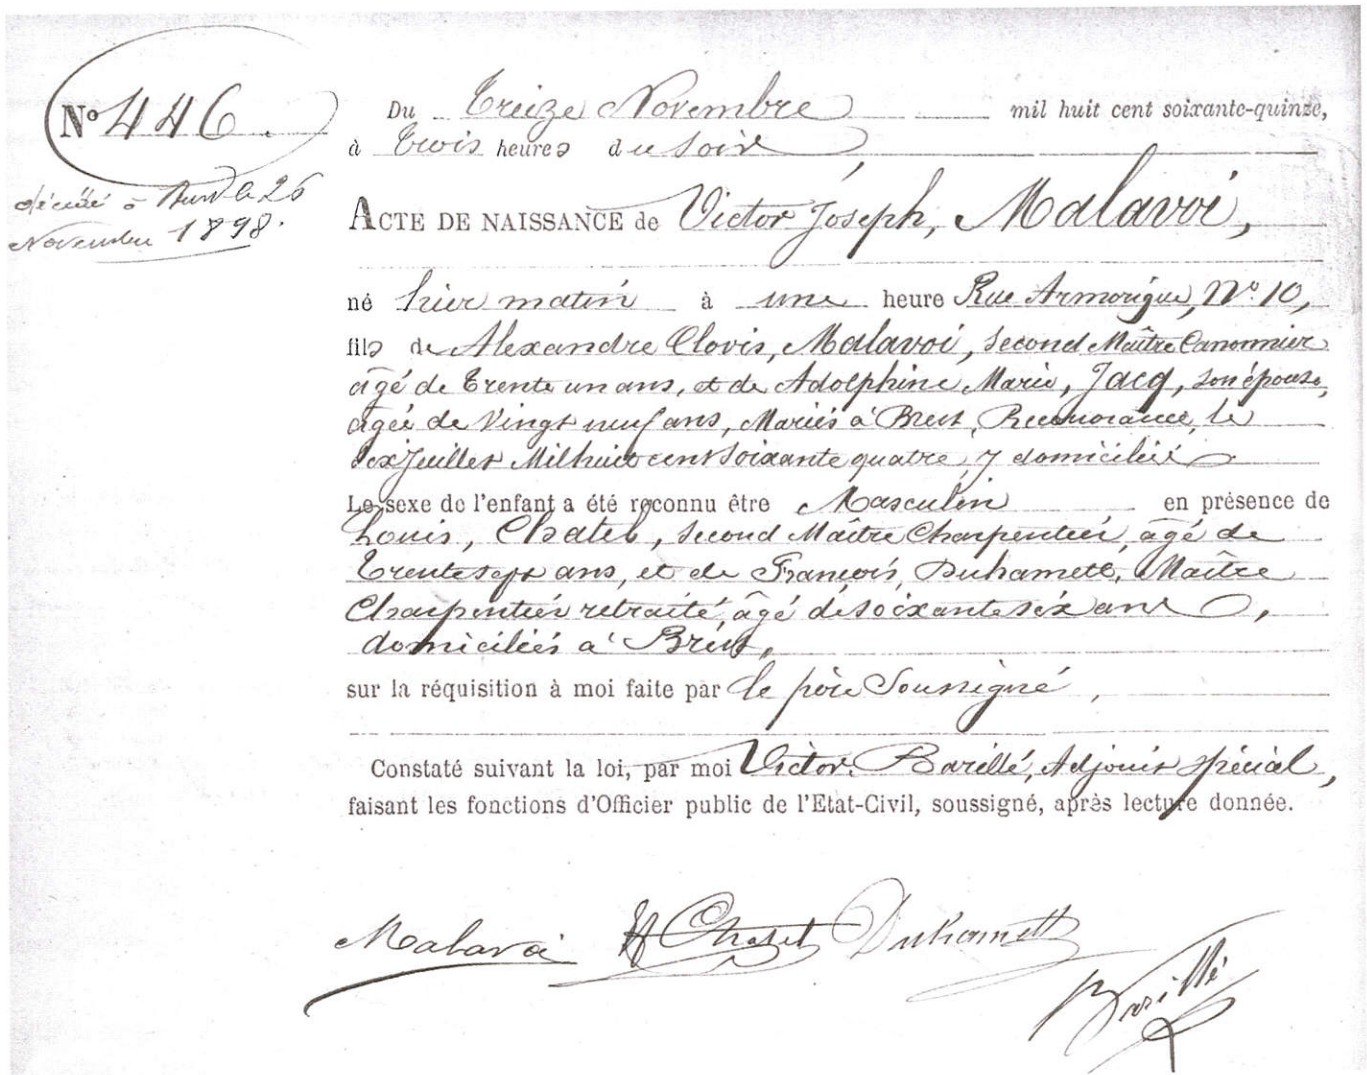 N° 446.
décédé à Brest le 26
Novembre 1898.
Du Treize Novembre mil huit cent soixante-quinze,
à trois heures du soir
ACTE DE NAISSANCE de Victor Joseph, Malavoi,
né hier matin à une heure Rue Armorique, N° 10,
fils de Alexandre Clovis, Malavoi, Second Maître Canonnier
âgé de trente un ans, et de Adolphine Marie, Jacq, son épouse,
âgée de Vingt neuf ans, Mariés à Brest, Recouvrance, le
Six Juillet Mil huit cent soixante quatre, y domiciliés
Le sexe de l'enfant a été reconnu être Masculin en présence de
Louis, Chatel, Second Maître Charpentier, âgé de
trente sept ans, et de François, Duhamell, Maître
Charpentier retraité, âgé de soixante six ans,
domiciliés à Brest,
sur la réquisition à moi faite par le père Soussigné,
Constaté suivant la loi, par moi Victor, Barillé, Adjoint spécial,
faisant les fonctions d'Officier public de l'Etat-Civil, soussigné, après lecture donnée.
Malavoi Chatel Duhamell
Barillé